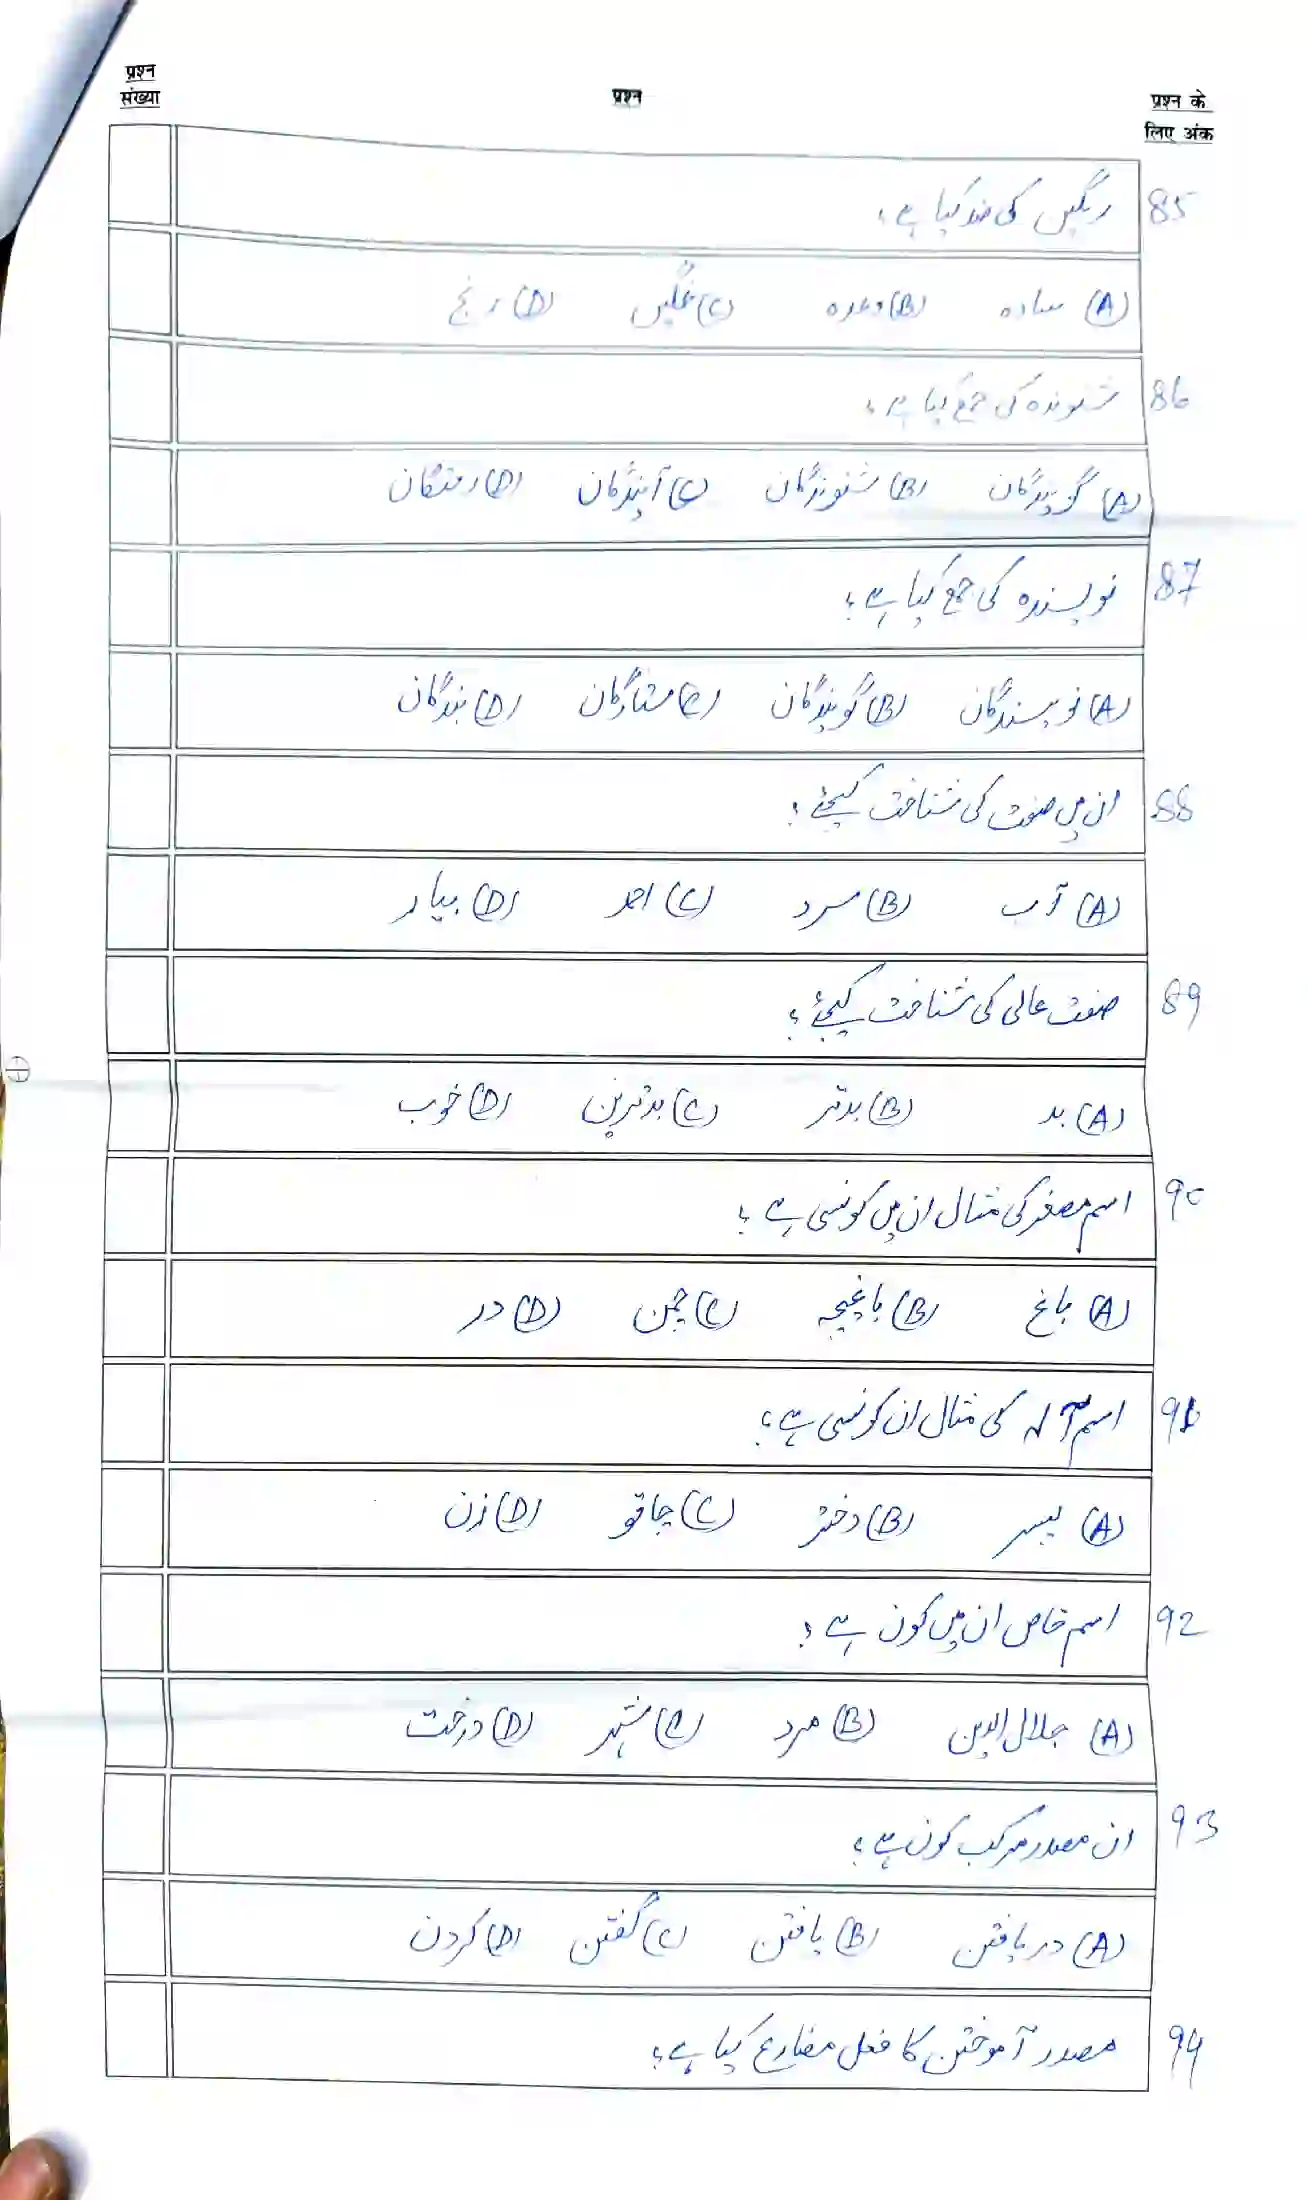 प्रश्न संख्या
प्रश्न
प्रश्न के लिए अंक
85 رنگین کی ضد کیا ہے؟
(A) سادہ (B) وعدہ (C) غمگین (D) رنج
86 شنوندہ کی جمع کیا ہے؟
(A) گویندگان (B) شنوندگان (C) آیندگان (D) رفتگان
87 نویسندہ کی جمع کیا ہے؟
(A) نویسندگان (B) گویندگان (C) ستارگان (D) بندگان
88 ان میں صفت کی شناخت کیجئے؟
(A) آب (B) سرد (C) احمد (D)
89 صفت عالی کی شناخت کیجئے؟
(A) بد (B) بدتر (C) بدترین (D) خوب
90 اسم مصغر کی مثال ان میں کونسی ہے؟
(A) باغ (B) باغیچہ (C) چمن (D) در
91 اسم آلہ کی مثال ان کونسی ہے؟
(A) پسر (B) دختر (C) چاقو (D) زن
92 اسم خاص ان میں کون ہے؟
(A) جلال الدین (B) مرد (C) شہر (D) درخت
93 ان مصدر مرکب کون ہے؟
(A) دریافتن (B) یافتن (C) گفتن (D) کردن
94 مصدر آموختن کا فعل مضارع کیا ہے؟